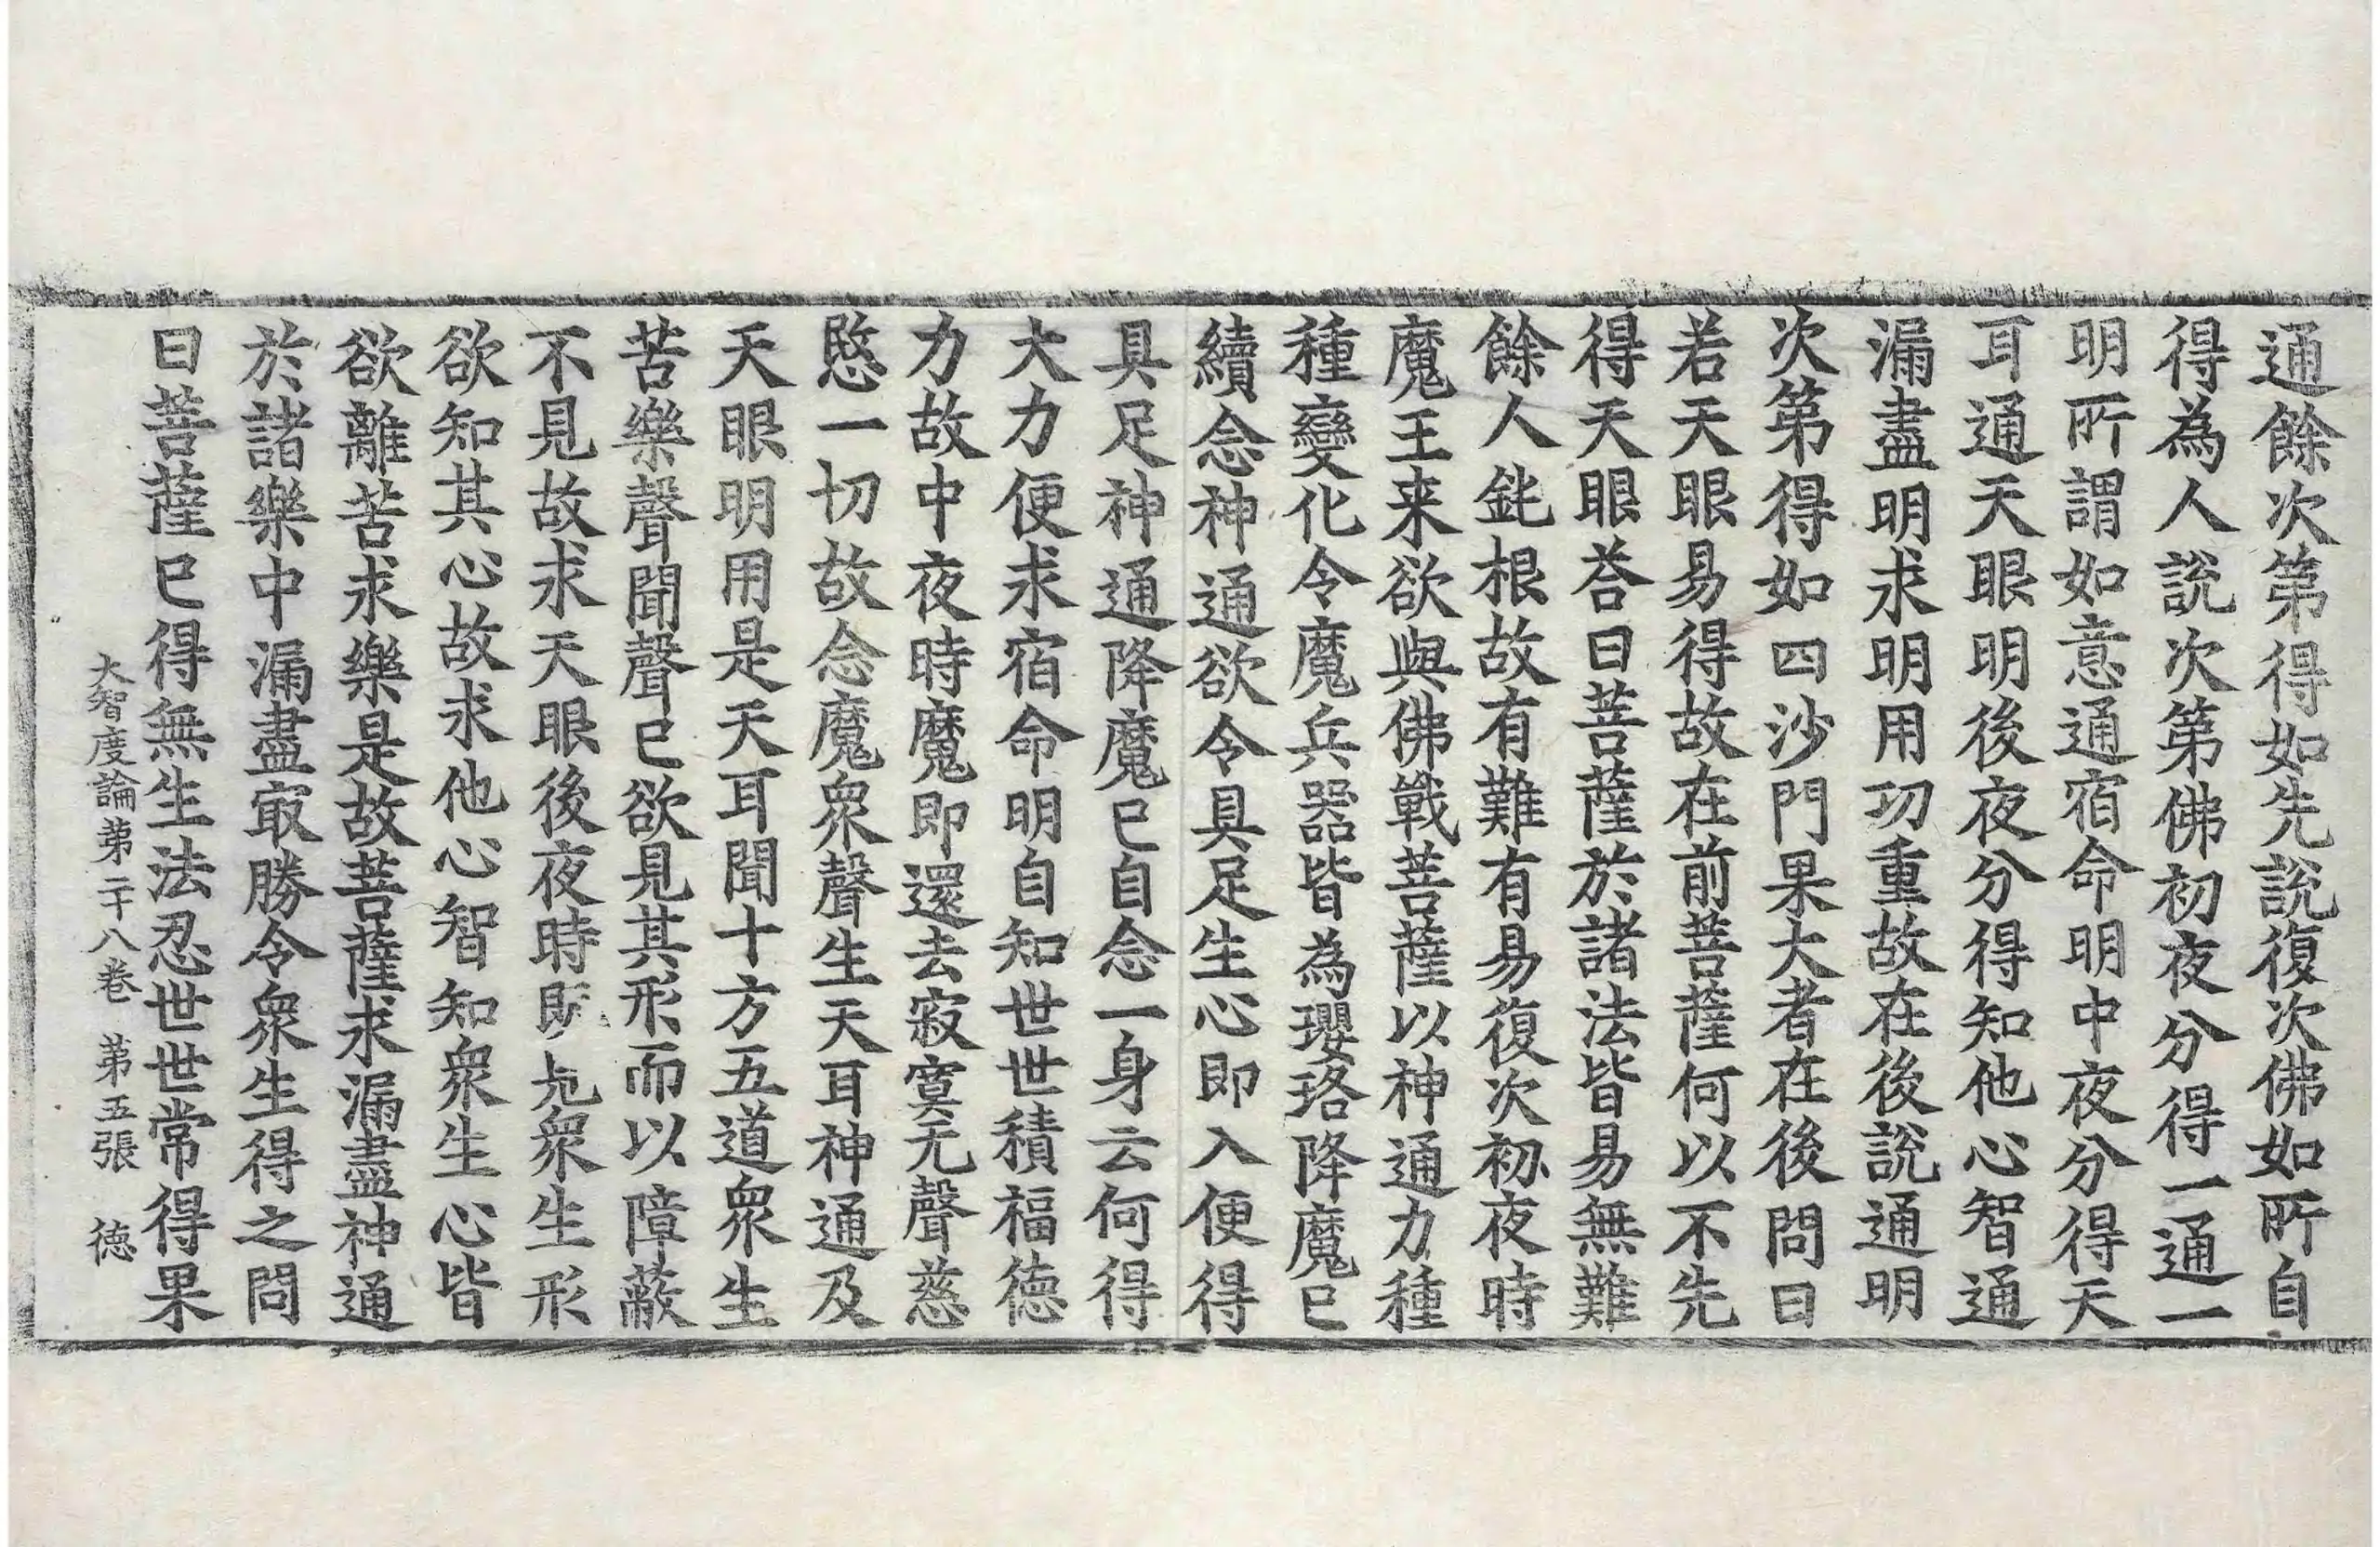 通餘次第得如先說復次佛如所自
得為人說次第佛初夜分得一通一
明所謂如意通宿命明中夜分得天
耳通天眼明後夜分得知他心智通
漏盡明求明用功重故在後說通明
次第得如四沙門果大者在後問曰
若天眼易得故在前菩薩何以不先
得天眼荅曰菩薩於諸法皆易無難
餘人鈍根故有難有易復次初夜時
魔王来欲與佛戰菩薩以神通力種
種變化令魔兵器皆為瓔珞降魔已
續念神通欲令具足生心即入便得
具足神通降魔已自念一身云何得
大力便求宿命明自知世世積福德
力故中夜時魔即還去寂寞无聲慈
愍一切故念魔衆聲生天耳神通及
天眼明用是天耳聞十方五道衆生
苦樂聲聞聲已欲見其形而以障蔽
不見故求天眼後夜時既見衆生形
欲知其心故求他心智知衆生心皆
欲離苦求樂是故菩薩求漏盡神通
於諸樂中漏盡㝡勝令衆生得之問
曰菩薩已得無生法忍世世常得果
大智度論第二十八卷 第五張 德